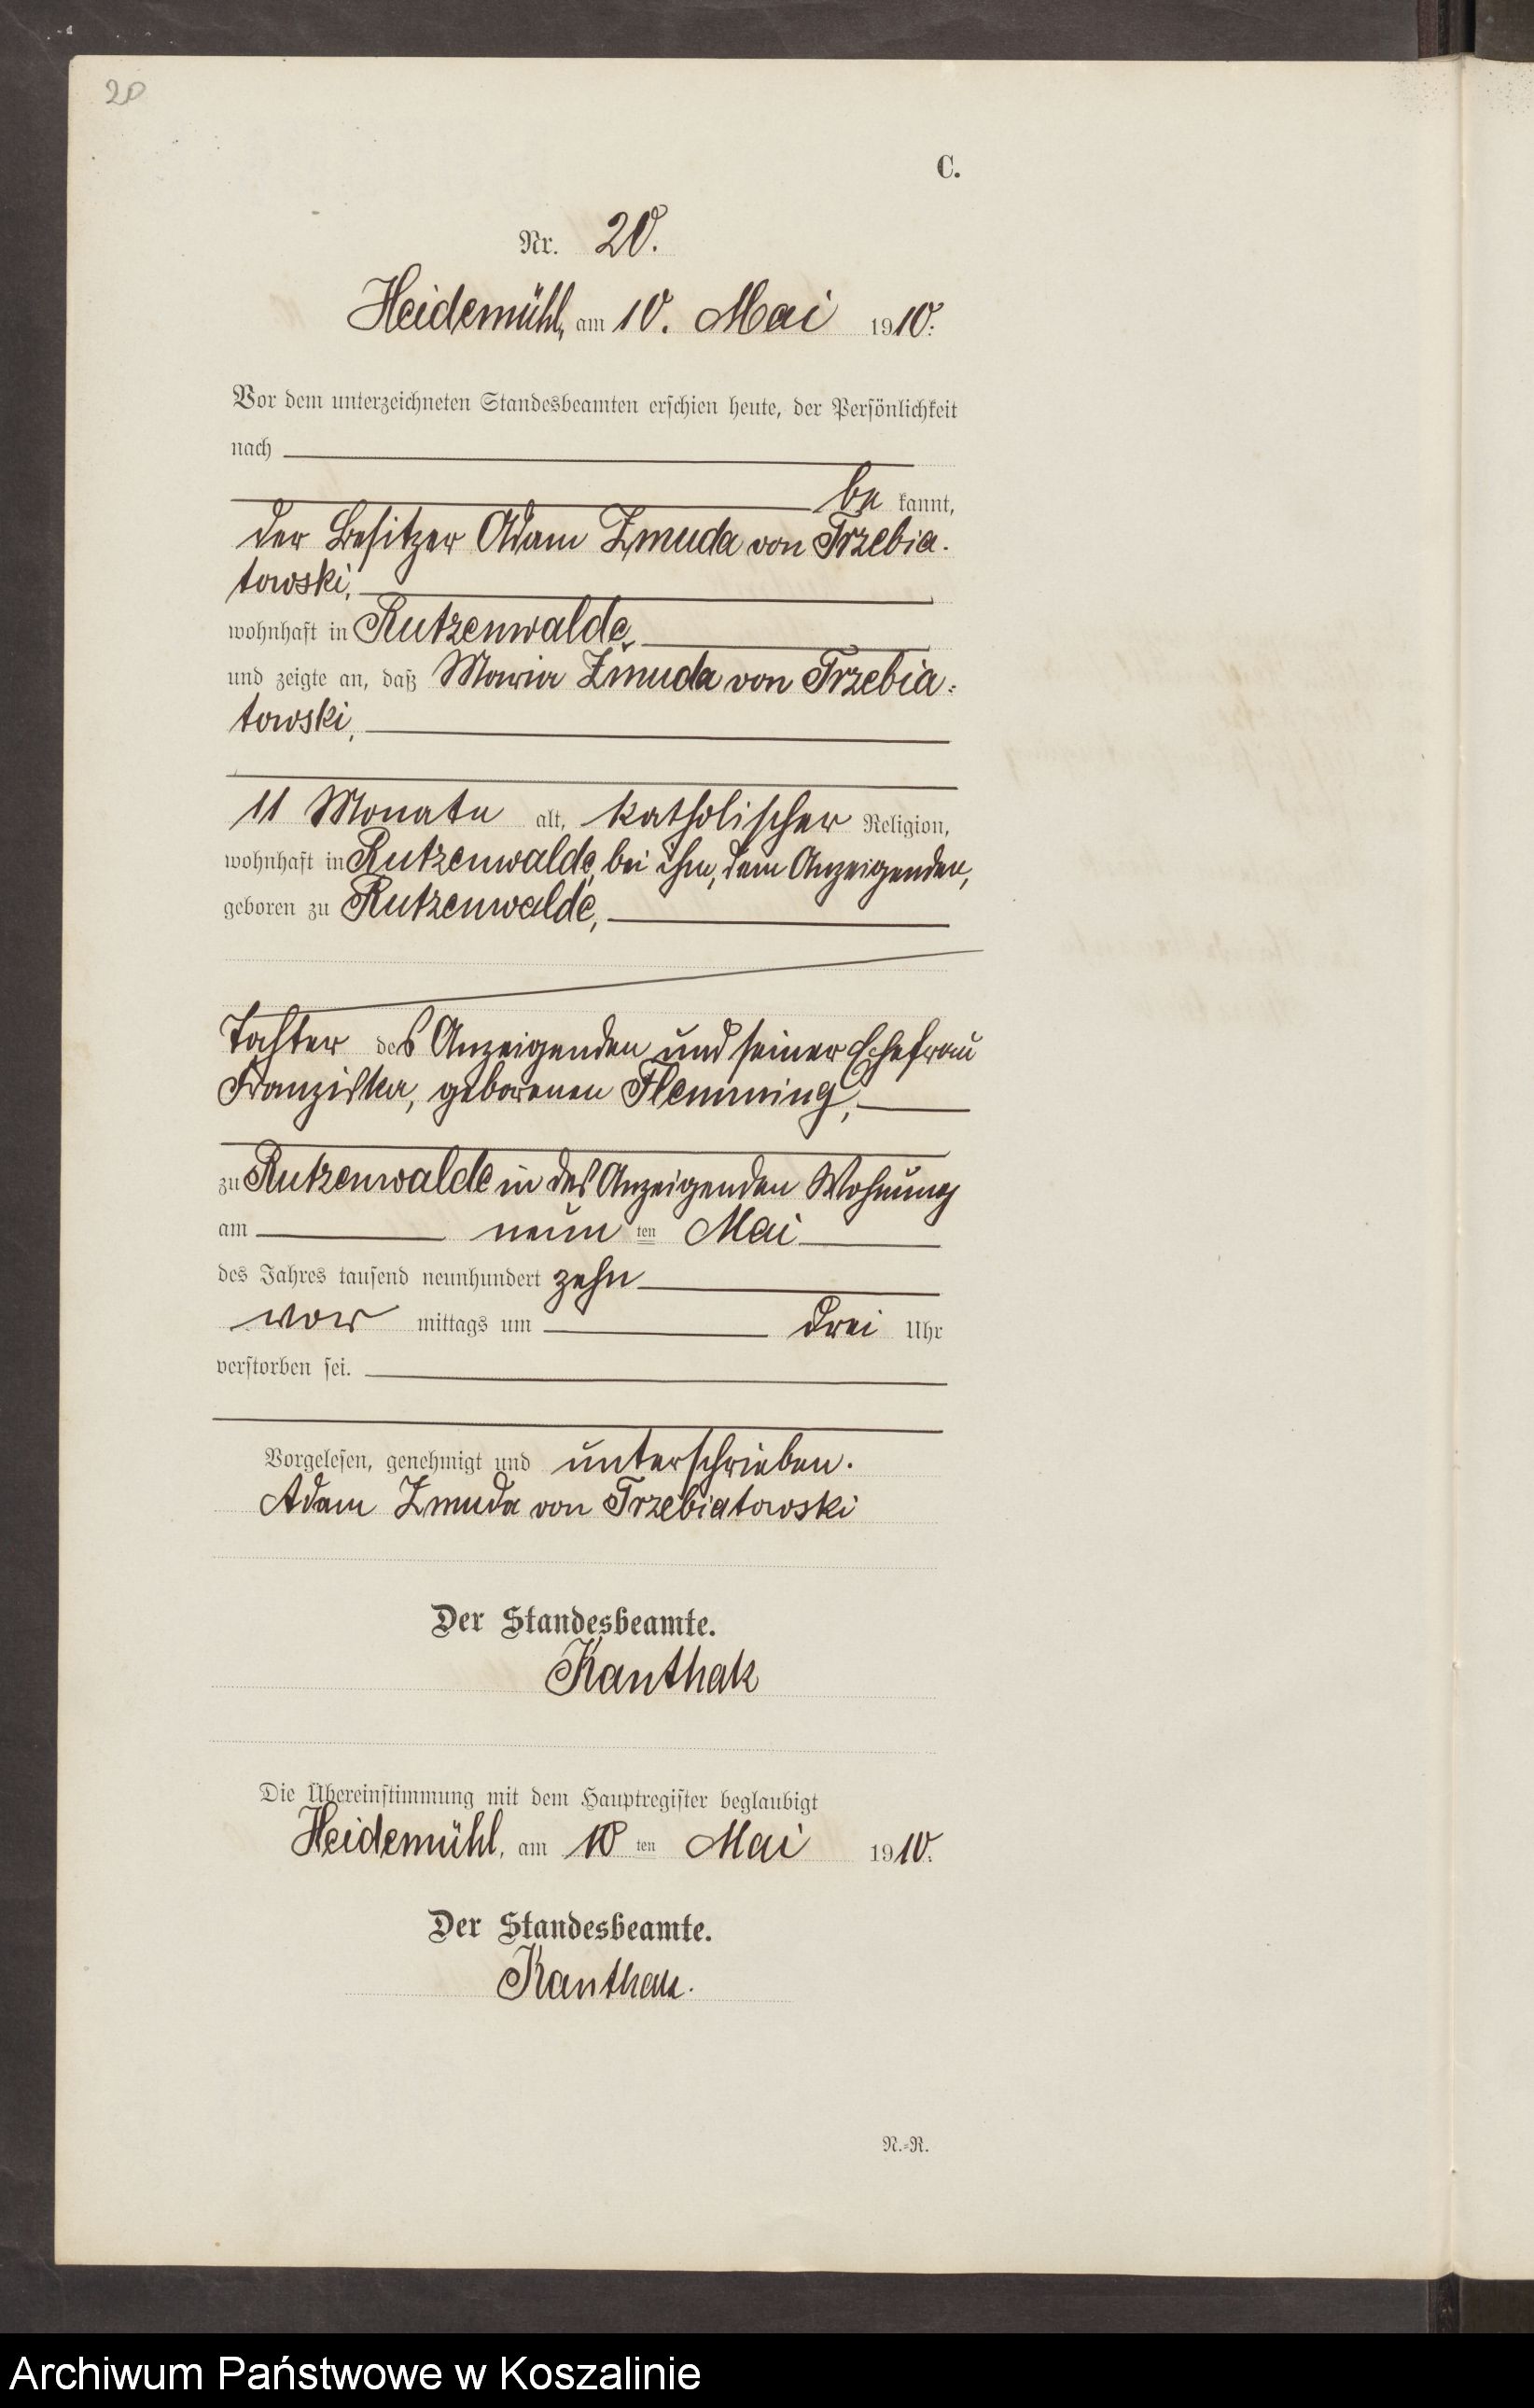 20
C.
Nr. 20.
Heidemühl, am 10. Mai 1910.
Vor dem unterzeichneten Standesbeamten erschien heute, der Persönlichkeit
nach
be kannt,
der Besitzer Adam Zmuda von Trzebia-
towski,
wohnhaft in Rutzenwalde,
und zeigte an, daß Maria Zmuda von Trzebia-
towski,
11 Monate alt, katholischer Religion,
wohnhaft in Rutzenwalde, bei ihm, dem Anzeigenden,
geboren zu Rutzenwalde,
Tochter des Anzeigenden und seiner Ehefrau
Franziska, geborenen Flemming,
zu Rutzenwalde in des Anzeigenden Wohnung
am neun ten Mai
des Jahres tausend neunhundert zehn
vor mittags um drei Uhr
verstorben sei.
Vorgelesen, genehmigt und unterschrieben.
Adam Zmuda von Trzebiatowski
Der Standesbeamte.
Kanthak
Die Übereinstimmung mit dem Hauptregister beglaubigt
Heidemühl, am 10 ten Mai 1910.
Der Standesbeamte.
Kanthak.
N.-R.
Archiwum Państwowe w Koszalinie